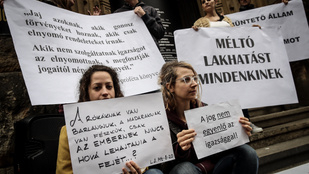 "Jaj azoknak, akik gonosz
törvényeket hoznak, akik csak
elnyomó rendeleteket írnak.
Akik nem szolgáltatnak igazságot
az elnyomottnak, s megfosztják
jogaitól
próféta könyve
BÜNTETŐ ÁLLAM
MÉLTÓ
LAKHATÁST
MINDENKINEK
A RÓKÁKNAK VAN
BARLANGJUK, A MADARAKNAK
VAN FÉSZKÜK, CSAK
AZ EMBERNEK NINCS
HOVÁ LEHAJTANIA A
FEJÉT..?
A jog nem
egyenlő az
igazsággal!